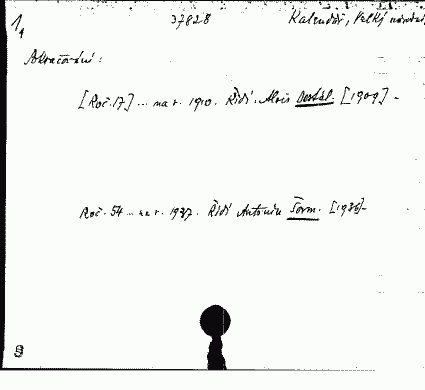 1/4 37828 Kalendář, Velký národní
Pokračování:
[Roč. 17] ... na r. 1910. Řídí Alois Dostál. [1909] -
Roč. 54 ... na r. 1937. Řídí Antonín Šorm. [1936] -